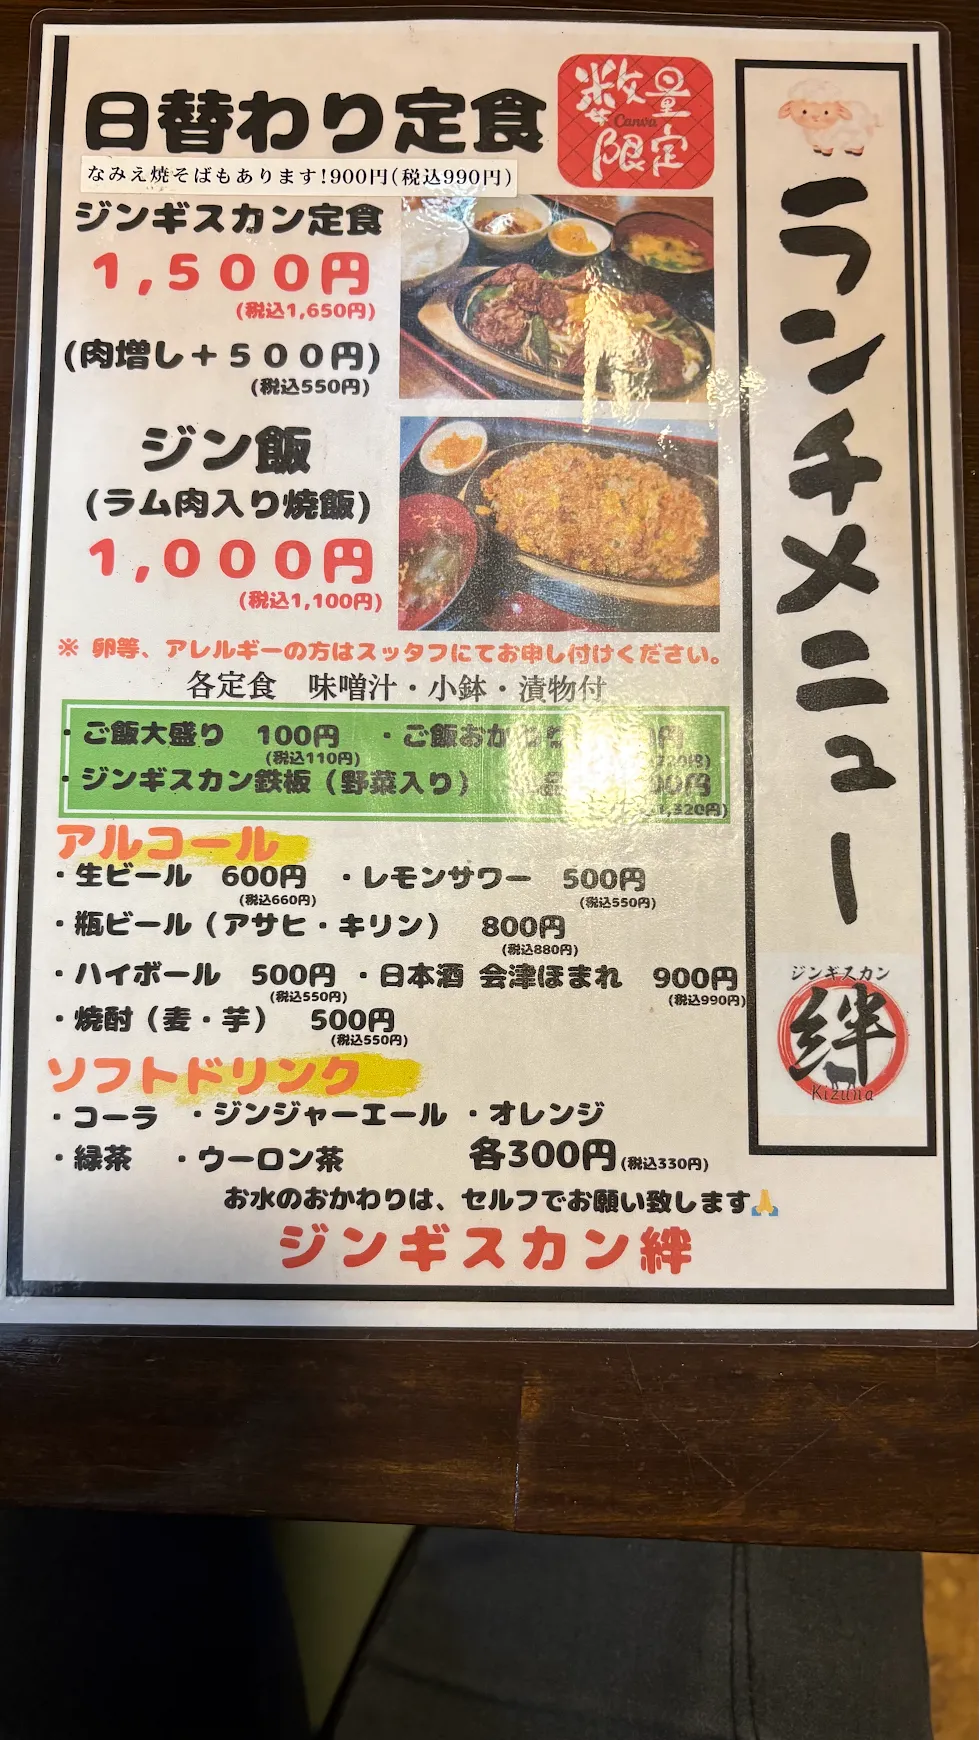 日替わり定食
数量
限定
Canva
なみえ焼そばもあります!900円(税込990円)
ジンギスカン定食
1,500円
(税込1,650円)
(肉増し+500円)
(税込550円)
ジン飯
(ラム肉入り焼飯)
1,000円
(税込1,100円)
※ 卵等、アレルギーの方はスッタフにてお申し付けください。
各定食 味噌汁・小鉢・漬物付
・ご飯大盛り 100円 ・ご飯おかわり 円
(税込110円)
・ジンギスカン鉄板(野菜入り) 00円
1,320円)
アルコール
・生ビール 600円 ・レモンサワー 500円
(税込660円) (税込550円)
・瓶ビール(アサヒ・キリン) 800円
(税込880円)
・ハイボール 500円 ・日本酒 会津ほまれ 900円
(税込550円) (税込990円)
・焼酎(麦・芋) 500円
(税込550円)
ソフトドリンク
・コーラ ・ジンジャーエール ・オレンジ
・緑茶 ・ウーロン茶 各300円(税込330円)
お水のおかわりは、セルフでお願い致します🙏
ジンギスカン絆
ランチメニュー
ジンギスカン
絆
Kizuna